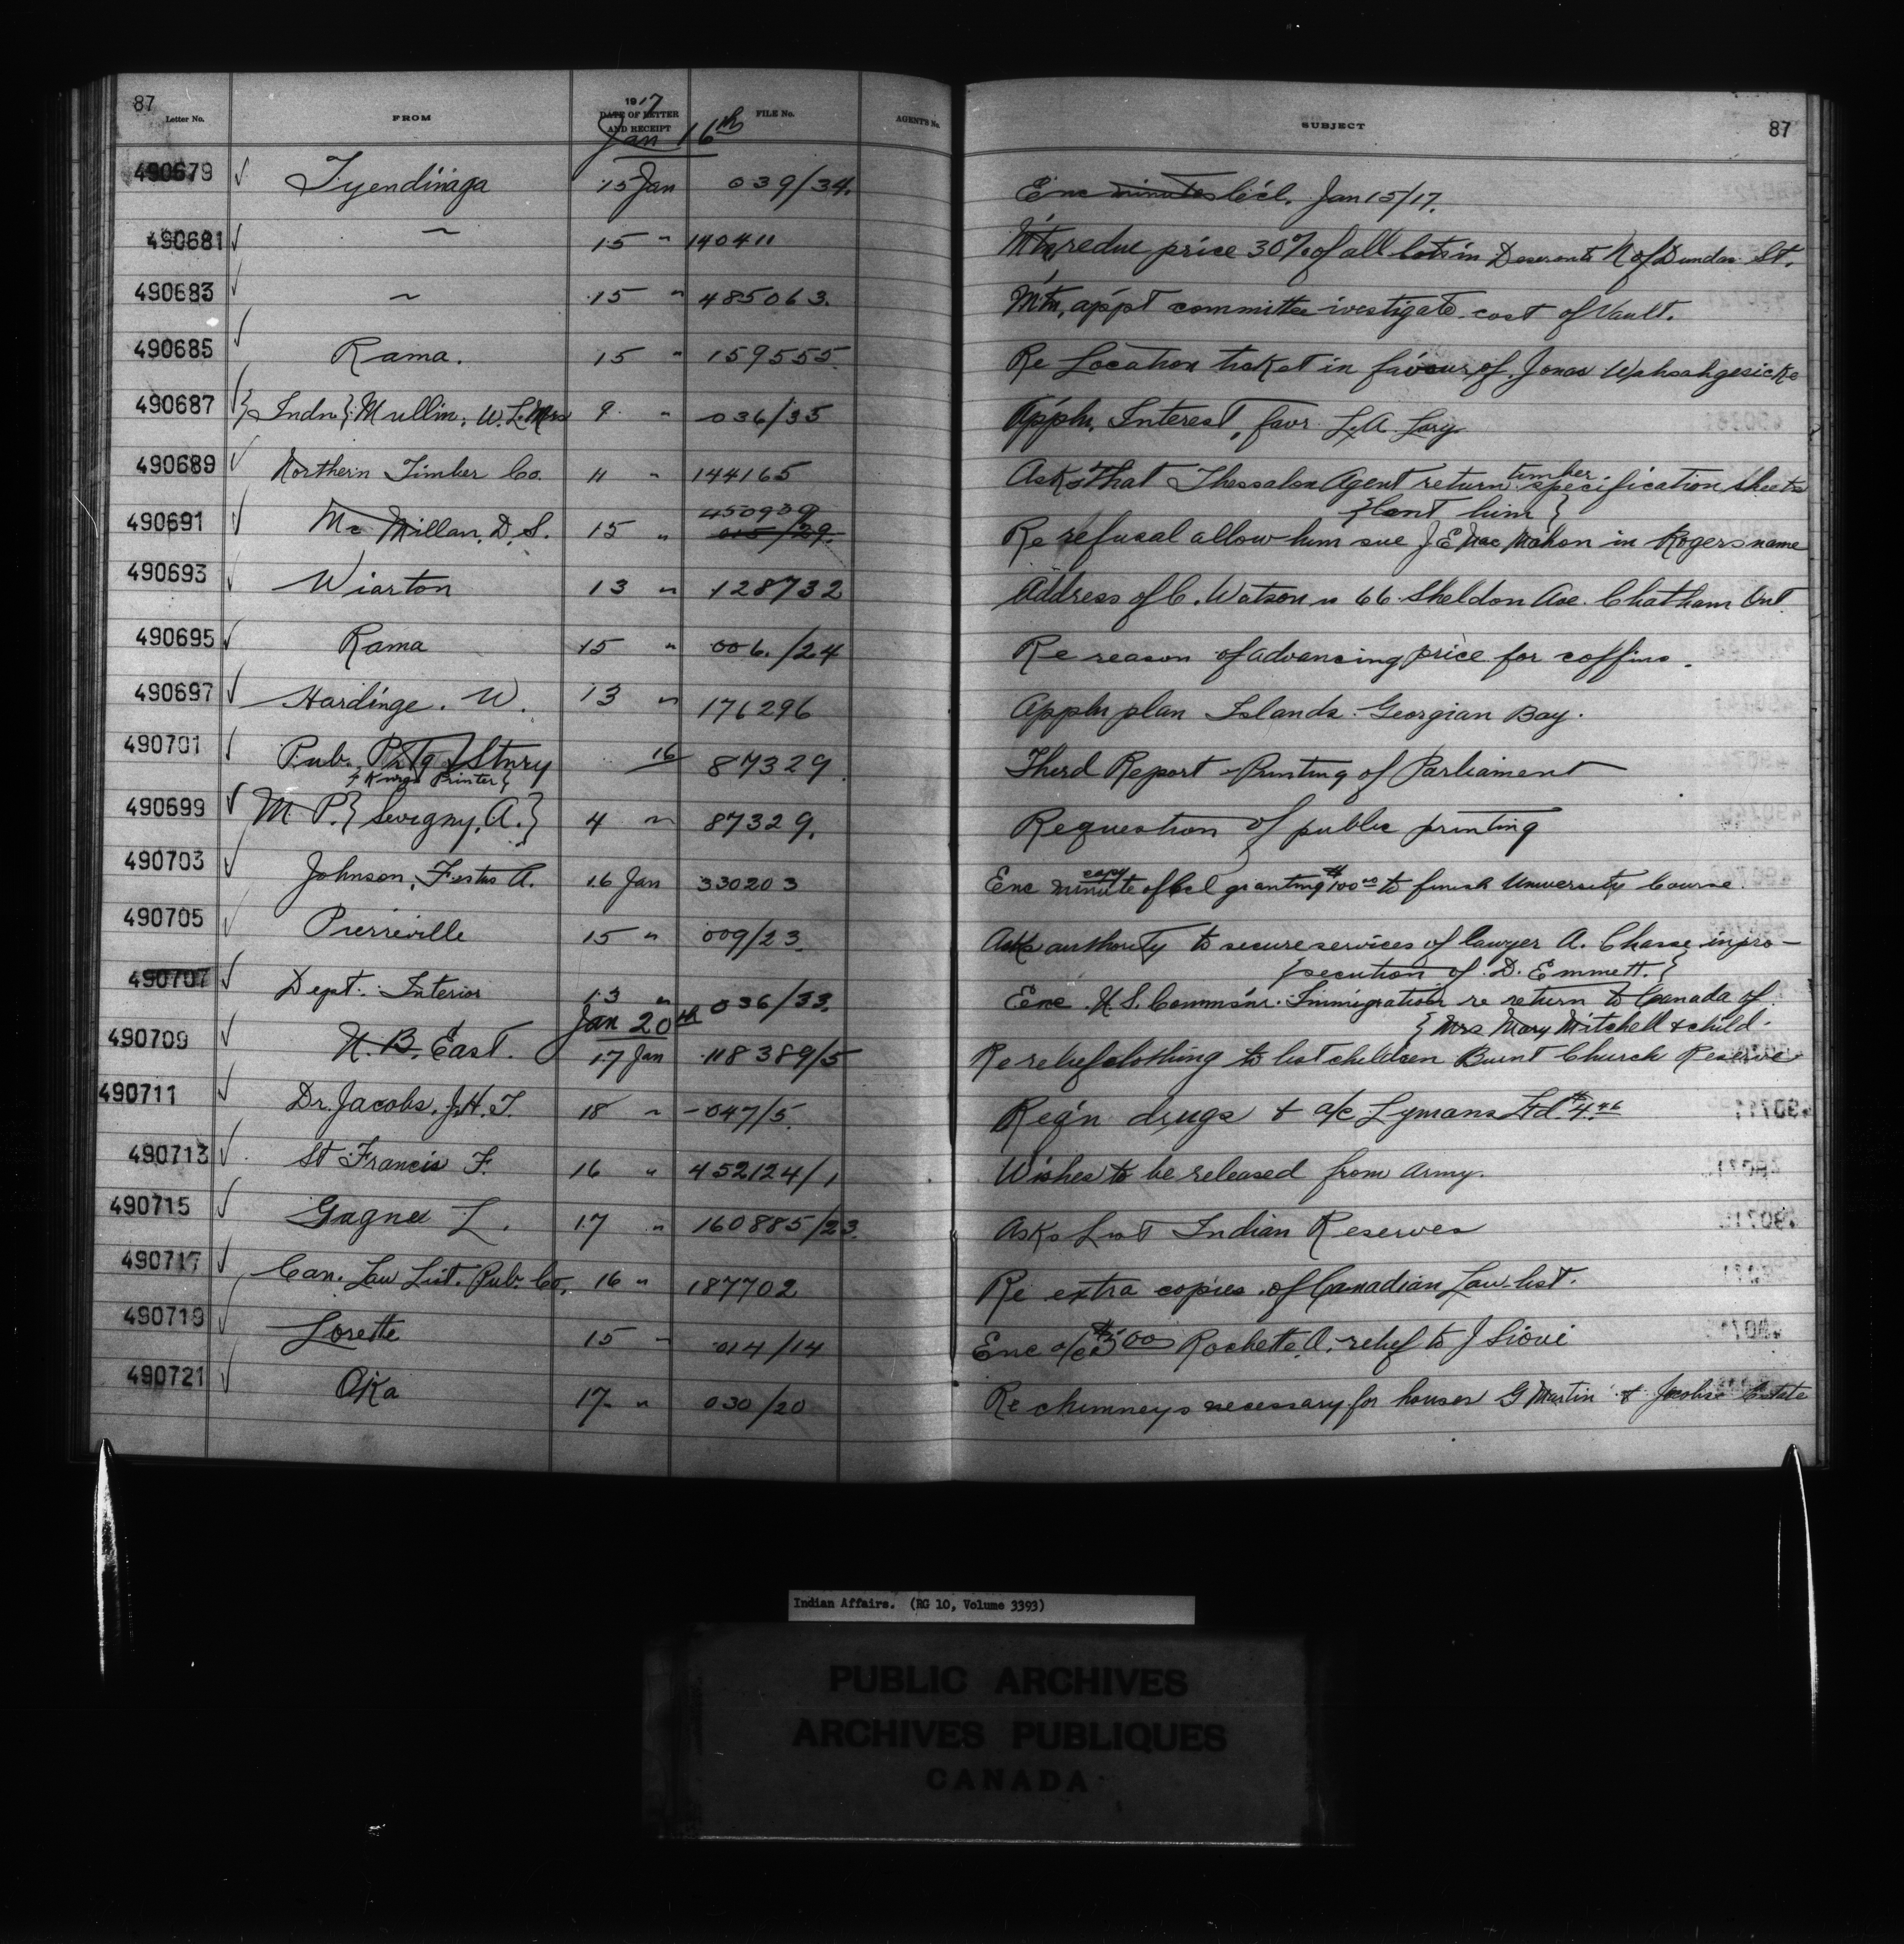 87
Letter No. FROM 1917 DATE OF LETTER AND RECEIPT FILE No. AGENTS No. SUBJECT 87
Jan 16th
490679 ✓ Tyendinaga 15 Jan 039/34. Enc minutes Cl'cl. Jan 15/17.
490681 ✓ ~ 15 " 140411 M'tn, reduc price 30% of all lots in Deseronto N of Dundas St.
490683 ✓ ~ 15 " 485063. M'tn, app't committee ivestigate cost of Vault.
490685 ✓ Rama. 15 " 159555 Re Location ticket in favour of Jonas Wahsahgesicke
490687 ✓ } Indn { Mullin, W. L. Mrs 9 " 036/35 App'ln, Interest, favr L. A. Lory
490689 ✓ Northern Timber Co. 11 " 144165 Asks that Thessalon Agent return timber specification sheets
{ lent him }
490691 ✓ Mc Millan, D. S. 15 " 450939 015/29. Re refusal allow him sue J E Mac Mahon in Rogers name
490693 ✓ Wiarton 13 " 128732 Address of C. Watson is 66 Sheldon Ave. Chatham Ont.
490695 ✓ Rama 15 " 006./24 Re reason of advancing price for coffins.
490697 ✓ Hardinge. W. 13 " 176296 Appln plan Islands Georgian Bay.
490701 ✓ Pub. Pr'tg & Stnry 16 87329 Third Report - Printing of Parliament
{ Kings Printer }
490699 ✓ M. P. { Sevigny, A. } 4 " 87329. Re question of public printing
490703 ✓ Johnson, Festus A. 16 Jan 330203 Enc copy minute of Ccl granting $100.00 to finish University Course.
490705 Pierreville 15 " 009/23 Asks authority to secure services of lawyer A. Chasse in pro-
{ secution of D. Emmett. }
490707 ✓ Dept. Interior 13 " 036/33. Enc U. S. Commsnr. Immigration re return to Canada of
{ Mrs Mary Mitchell & child.
Jan 20th
490709 ✓ N. B. East. 17 Jan 118389/5 Re relief clothing to list children Burnt Church Reserve
490711 ✓ Dr. Jacobs, J. H. T. 18 " 047/5. Req'n drugs & a/c Lymans Ltd. $4.46
490713 ✓ St Francis F. 16 " 452124/1 Wishes to be released from army.
490715 ✓ Gagne L. 17 " 160885/23. Asks List Indian Reserves
490717 ✓ Can. Law List. Pub. Co. 16 " 187702 Re extra copies of Canadian Law list.
490719 Lorette 15 " 014/14 Enc a/c $5.00 Rochette A. relief to J Sioui
490721 ✓ Oka 17 " 030/20 Re chimneys necessary for houses G Martin & Jacobs Estate
Indian Affairs. (RG 10, Volume 3393)
PUBLIC ARCHIVES
ARCHIVES PUBLIQUES
CANADA